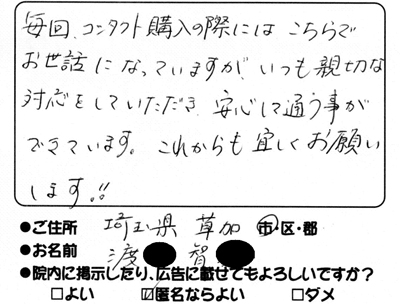 毎回、コンタクト購入の際には こちらで
お世話になっていますが、いつも親切な
対応をしていただき、安心して通う事が
できています。これからも宜しくお願い
します!!
●ご住所 埼玉県 草加 市・区・郡
●お名前 渡 智
●院内に掲示したり、広告に載せてもよろしいですか?
□よい ☑匿名ならよい □ダメ